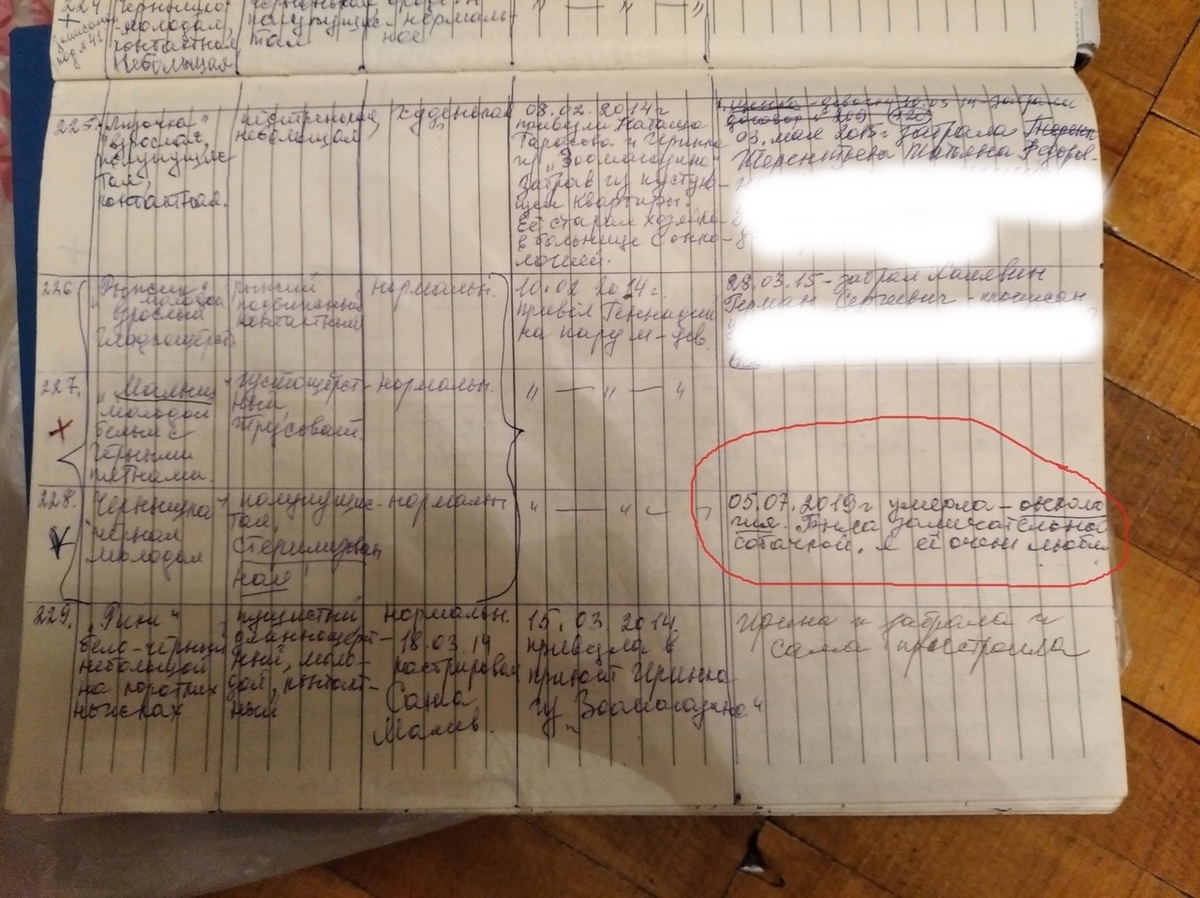 224
+
записана
под №41
молодая,
контактная
небольшая
полупушис-
тая
нормаль-
ное
" — " — "
225. "Лизочка"
взрослая,
полупушис-
тая,
контактная.
пёстренькая,
небольшая
худенькая
08.02.2014г
привезли Наташа
Тарасова и Иринка
из "Зоомагазина"
забрав из пустую-
щей квартиры.
Её старая хозяйка
в больнице с онко-
логией.
03. мая 2015г забрала
Терентьева Татьяна Федоров-
226
"Рыжик"
молодой
взрослый
гладкошёрст.
рыжий
подвижный
контактный
нормальн.
10.02 2014г.
привёз Геннадий
на пару м-цев.
28.03.15 - забрал
Герман Сергеевич - прописан
227.
+
"Малыш"
молодой
белый с
чёрными
пятнами.
густошёрст-
ный,
трусоват.
нормальн.
" — " — "
228.
V
"Чернышка"
чёрная
молодая
полупушис-
тая,
стерилизован
ная!
нормальн
" — " —
05.07.2019г умерла - онколо
гия. Была замечательной
собачкой, я её очень любила
229.
"Рики"
бело-чёрный
небольшой
на коротких
ножках
пушистый
длинношёрст-
ный, моло-
дой, контакт-
ный
нормальн.
18.03.14
кастрирован
Саша
Малов.
15.03 2014
привезла в
приют Иринка
из "Зоомагазина"
Ирина и забрала и
сама пристроила